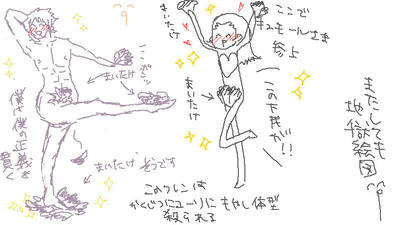 ここで
キュモールさま
参上
まいたけ
この下民が!!
まいたけ
まいたけ
僕は僕の正義を
貫く
まいたけ
そうです
このフレンは
かくじつにユーリに
殺られる
もやし体型
またしても
地獄絵図